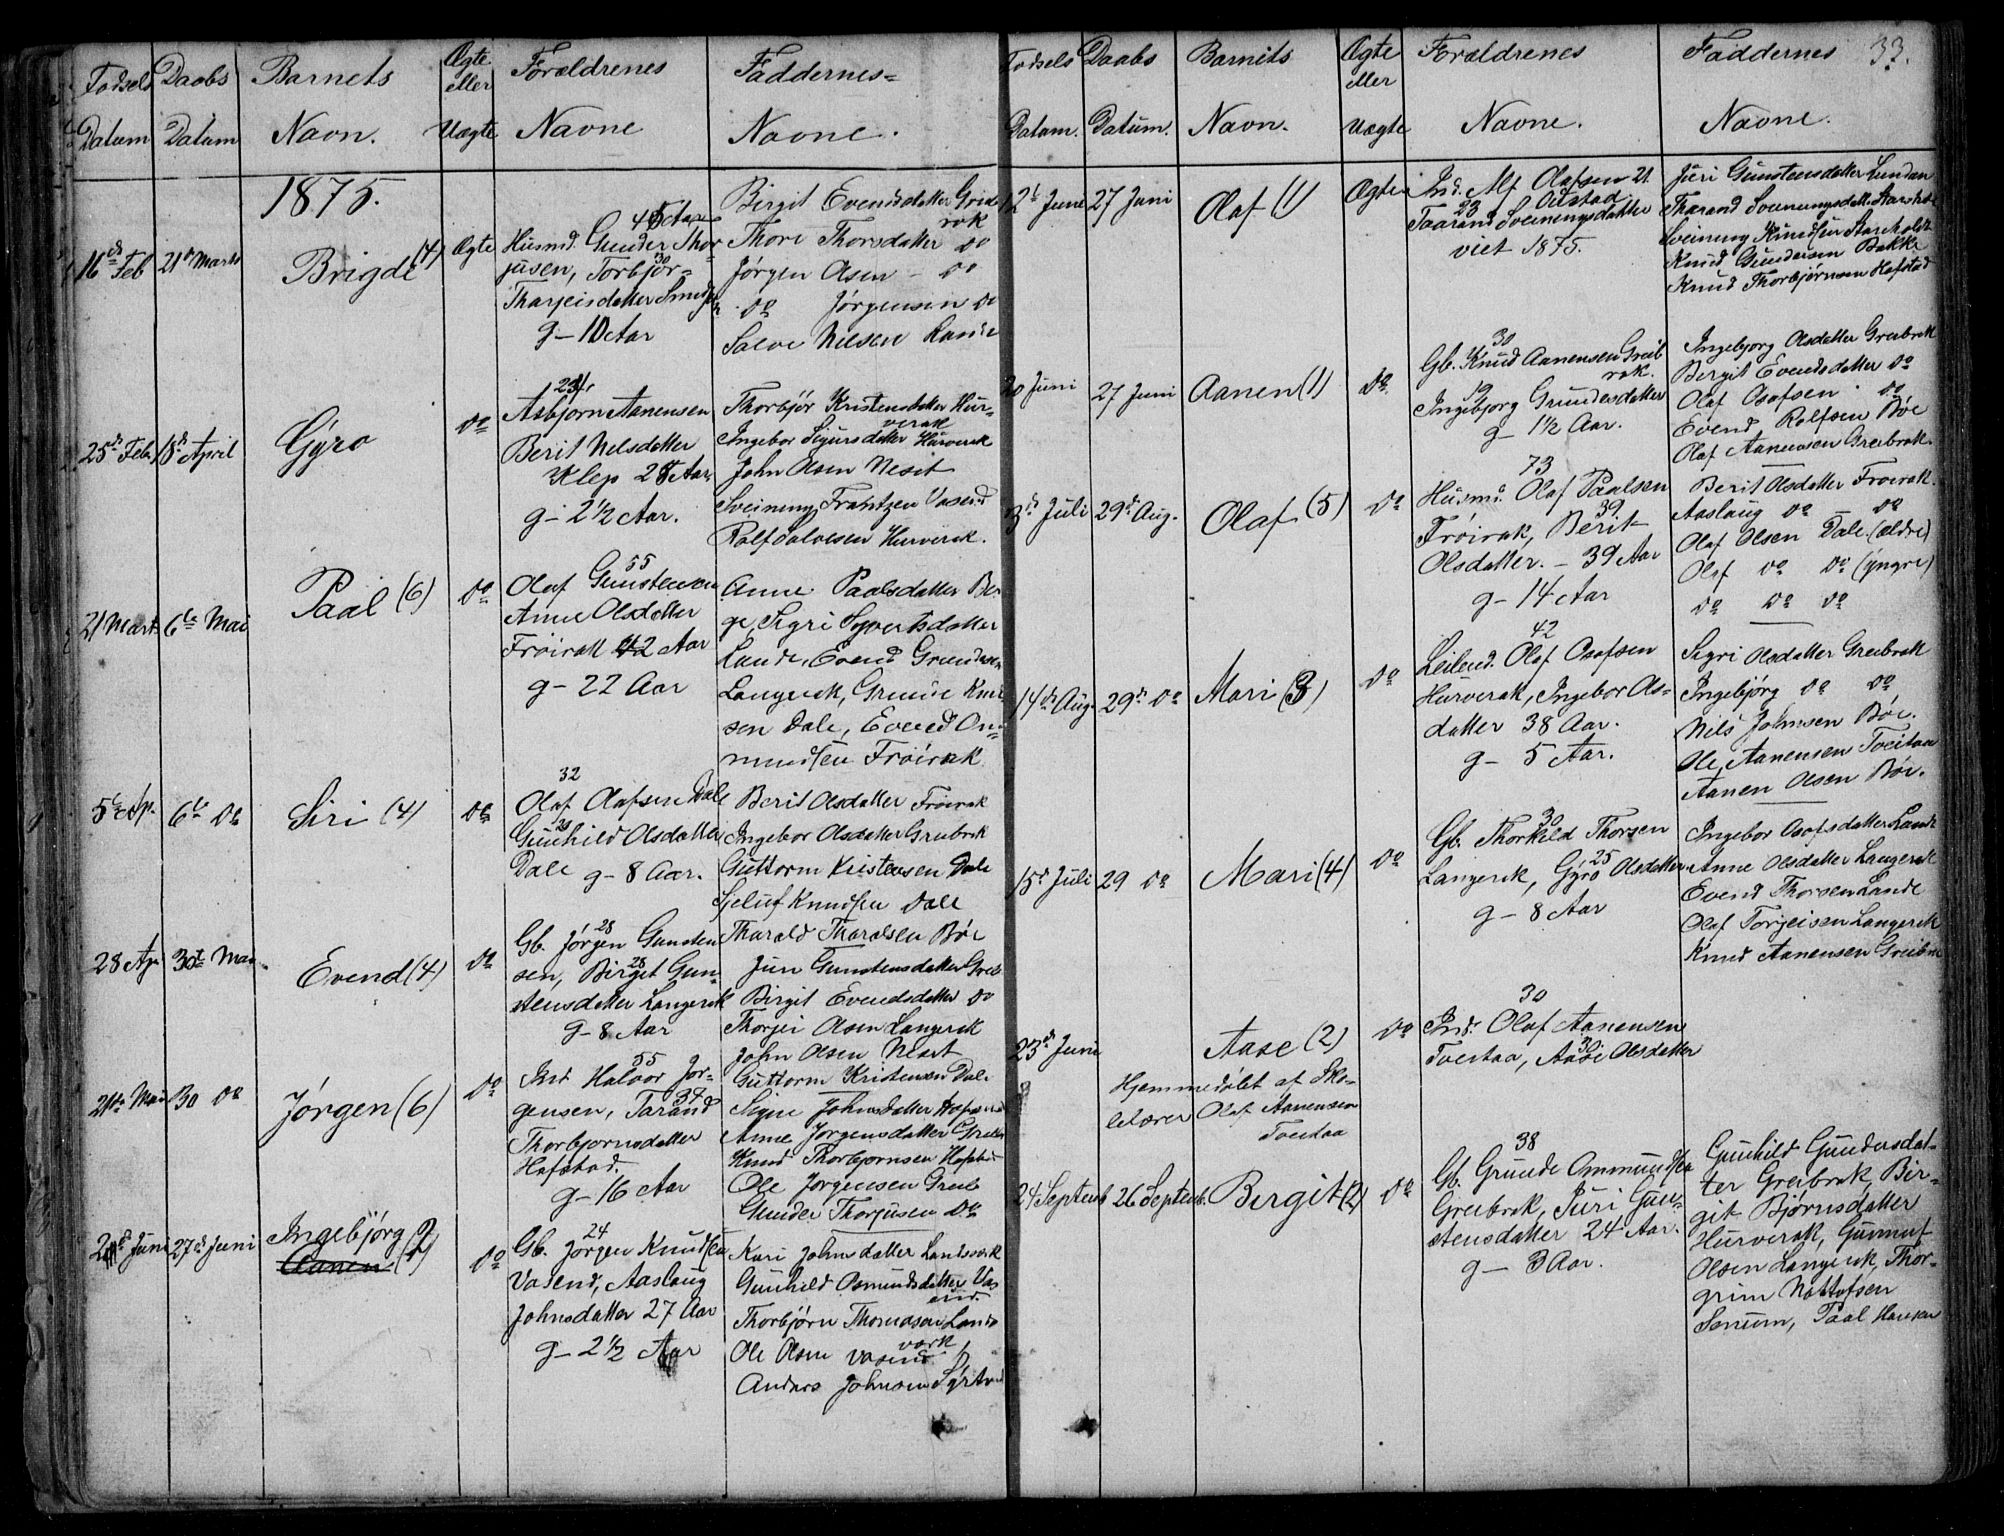 33.
Fødsels Datum
Daabs Datum
Barnets Navn.
Ægte eller Uægte
Forældrenes Navne
Faddernes Navne.
1875.
16de Feb
21de Marts
Brigde (4)
Ægte
45 Aar
Husmd. Gunder Thor-
jusen, Torbjør
30
Tharjeisdatter
g - 10 Aar
Birgit Evendsdatter Greib
rok
Thore Thorsdatter do
Jørgen Osen - do
do Jørgensen do
Salve Nilsen Lande
25de Feb.
18de April
Gýro
do
Asbjørn Aanensen
Berit Nelsdatter
Klep 28 Aar
g - 2 1/2 Aar.
Thorbjør Kristensdatter Hur-
verak
Ingebor Sigursdatter Hurverak
John Olsen Nesit
Sveinung Frantzen Vasend
Rolf Salvesen Hurverak.
21 Marts
6te Mai
Paal (6)
do
55
Olaf Gunstensen
Anne Olsdatter
Frøirak 42 Aar
g - 22 Aar
Anne Paalsdatter Ber-
ge, Sigri Syvertsdatter
Lande, Evend Grundesen
Langerak, Grunde Knu-
sen Dale, Evend On-
mundsen Frøirak.
5te Ap.
6te do
Siri (4)
do
32
Olaf Olafsen Dale
Gunhild Olsdatter
Dale g - 8 Aar.
Berit Olsdatter Frøirak
Ingebor Olsdatter Greibrok
Guttorm Kristensen Dale
Sjeluf Knudsen Dale
28 Ap.
30te Mai
Evend (4)
do
28
Gb. Jørgen Gunsten-
sen, Birget Gun-
28
stensdatter Langerak
g - 8 Aar
Tharald Tharalsen Bøe
Juri Gunstensdatter Greib
Birgit Evendsdatter do
Thorjei Olsen Langerak
John Olsen Nesit
21de Mai
30 do
Jørgen (6)
do
55
Ind. Halvor Jør-
gensen, Tarand
34
Thorbjørnsdatter
Hafstad.
g - 16 Aar
Guttorm Kristensen Dale
Signe Johnsdatter
Anne Jørgensdatter Greib
Knud Thorbjørnsen Hafstad
Ole Jørgensen Greib
Gunder Thorjusen do
Juni
27de Juni
Ingebjørg
Aanen
do
24
Gb. Jørgen Knudsen
Vasend, Aaslaug
Johnsdatter 27 Aar
g - 2 1/2 Aar
Kari Johnsdatter Landsverk
Gunhild Osmundsdatter Vas
end.
Thorbjørn Thomdsen Lands
vark
Ole Olsen Vasend
Anders Johnsen
Fødsels Datum.
Daabs Datum.
Barnets Navn.
Ægte eller Uægte
Forældrenes Navne.
Faddernes Navne.
12te Juni
27 Juni
Olaf (1)
Ægte
Ind. Alf Olafsen 21
23
Taarand Sveinungsdatter
viet 1875.
Juri Gunstensdatter Lundan
Tharand Sveinungsdatt.
Sveinung Knudsen
Knud Gundersen Bakke
Knud Thorbjørnsen Hafstad
20 Juni
27 Juni
Aanen (1)
do
30
Gb. Knud Aanensen Greib
rok.
19
Ingebjørg Grundesdatter
g - 1 1/2 Aar.
Ingebjorg Olsdatter Greibrok
Bergit Evendsdatter do
Olaf Osofsen do
Evend Rolfsen Bøe
Olaf Aanensen Greibrok.
3de Juli
29de Aug.
Olaf (5)
do
73
Husmd. Olaf Paalsen
39
Frøirak, Berit
Olsdatter. - 39 Aar
g - 14 Aar
Berit Olsdatter Frøirak.
Aaslaug do - do
Olaf Olsen Dale (ældre)
Olaf do do (ýngre)
do do do
14de Aug.
29de do
Mari (3)
do
42
Leilend. Olaf Osofsen
Hurverak, Ingebor As-
datter 38 Aar.
g - 5 Aar.
Sigri Olsdatter Greibrok
Ingebjørg do do
Nils Johnsen Bøe.
Ole Aanensen Tveitaa
Aanen Olsen Bøe.
15de Juli
29 do
Mari (4)
do
30
Gb. Thorkild Thorsen
25
Langerak, Gýro Olsdatter
g - 8 Aar
Ingebor Osofsdatter Lande
Anne Olsdatter Langerak
Evend Thorsen Lande
Olaf Torjeisen Langerak
Knud Aanensen Greibrok
23de Juni
Aase (2)
do
30
Ind. Olaf Aanensen
30
Tveitaa, Aase Olsdatter
Hjemmedøbt af Sko-
lelærer Olaf Aanensen
Tveitaa
24 Septemb
26 Septemb.
Bergit (2)
do
38
Gb. Grunde Ommundsen
Greibrok, Juri Gun-
stensdatter 24 Aar.
g - 3 Aar.
Gunhild Gundersdat-
ter Greibrok, Bir-
git Bjørnsdatter
Hurverak, Gunnuf
Olsen Langerak, Thor-
grim Nottofsen
Senum, Paal Hansen